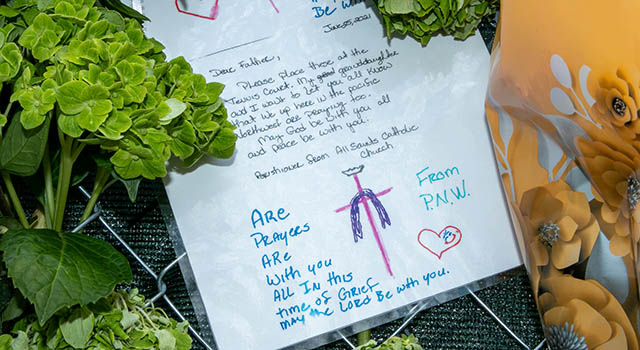 Be Wi
June 25, 2021
Dear Father,
Please place these at the
Tennis Court. My grand granddaughter
and I want to let you all know
that we up here in the pacific
Northwest are praying too.
May God be with you all
and peace be with you.
Parishioner from All Saints Catholic
Church
From
P.N.W.
ARE
PRAYERS
ARE
With you
ALL IN this
time of GRIEF
MAY the LORD Be with you.